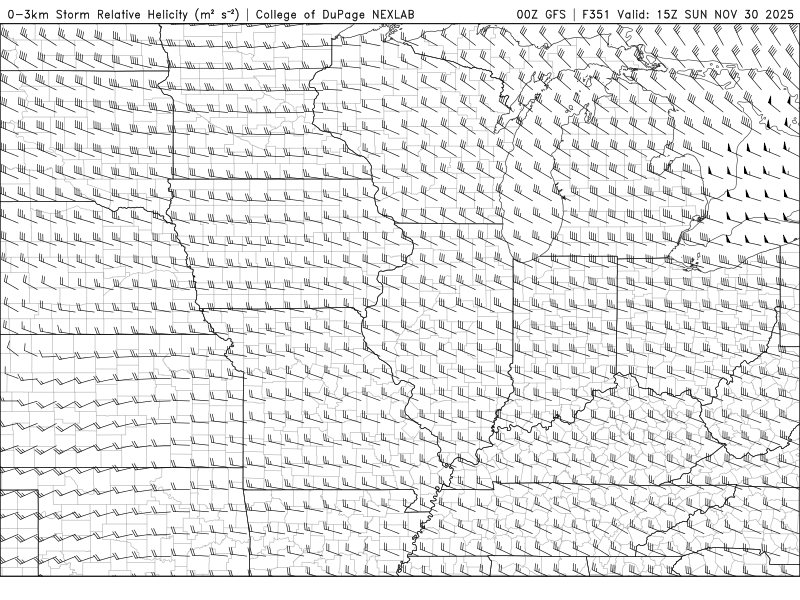 0-3km Storm Relative Helicity (m² s⁻²) | College of DuPage NEXLAB
00Z GFS | F351 Valid: 15Z SUN NOV 30 2025